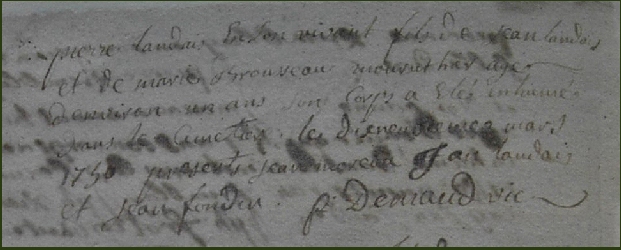 pierre landais En son vivant fils de jean landais
et de marie mourut hier age
denviron un ans son Corps a eté inhumé
dans le Cimetiere les mars
1750 presents jean moreau Jan landais
et jean fonden P. Demaud vic